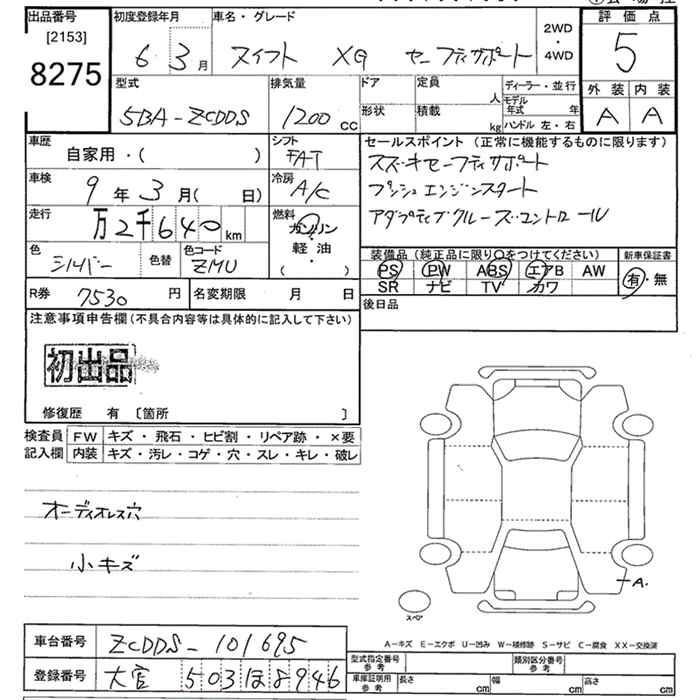 出品番号 初度登録年月 車名・グレード 2WD・4WD 評価点
[2153]
8275
6 3月 スイフト XG セーフティサポート 5
型式 排気量 ドア 定員 人 ディーラー・並行 外装 内装
5BA-ZCDDS 1200cc 形状 積載 kg モデル年式 年 ハンドル 左・右 A A
車歴 自家用・( ) シフト FAT
車検 9年3月( 日) 冷房 A/C
走行 万2千640km 燃料 ガソリン・軽油・( )
色 シルバー 色替 色コード ZMU
R券 7530円 名変期限 月 日
セールスポイント(正常に機能するものに限ります)
スズキセーフティサポート
プッシュエンジンスタート
アダプティブクルーズコントロール
装備品(純正品に限り○をつけてください) 新車保証書
PS PW ABS エアB AW 有・無
SR ナビ TV カワ
後日品
注意事項申告欄(不具合内容等は具体的に記入して下さい)
初出品
修復歴 有 〔箇所 〕
検査員 FW キズ・飛石・ヒビ割・リペア跡・×要
記入欄 内装 キズ・汚レ・コゲ・穴・スレ・キレ・破レ
オーディオレス穴
小キズ
A.
スペア
A−キズ E−エクボ U−凹み W−補修跡 S−サビ C−腐食 XX−交換済
車台番号 ZCDDS-101695
登録番号 大宮 503 ほ 8946
型式指定番号 参考 類別区分番号 参考
車庫証明用 参考 長さ cm 幅 cm 高さ cm